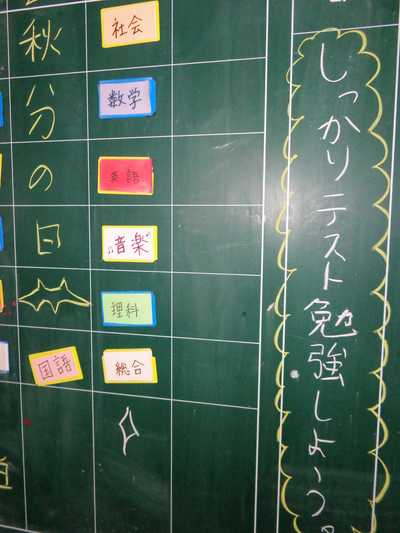 しっかりテスト勉強しよう。
社会
数学
英語
音楽
理科
総合
秋分の日
国語